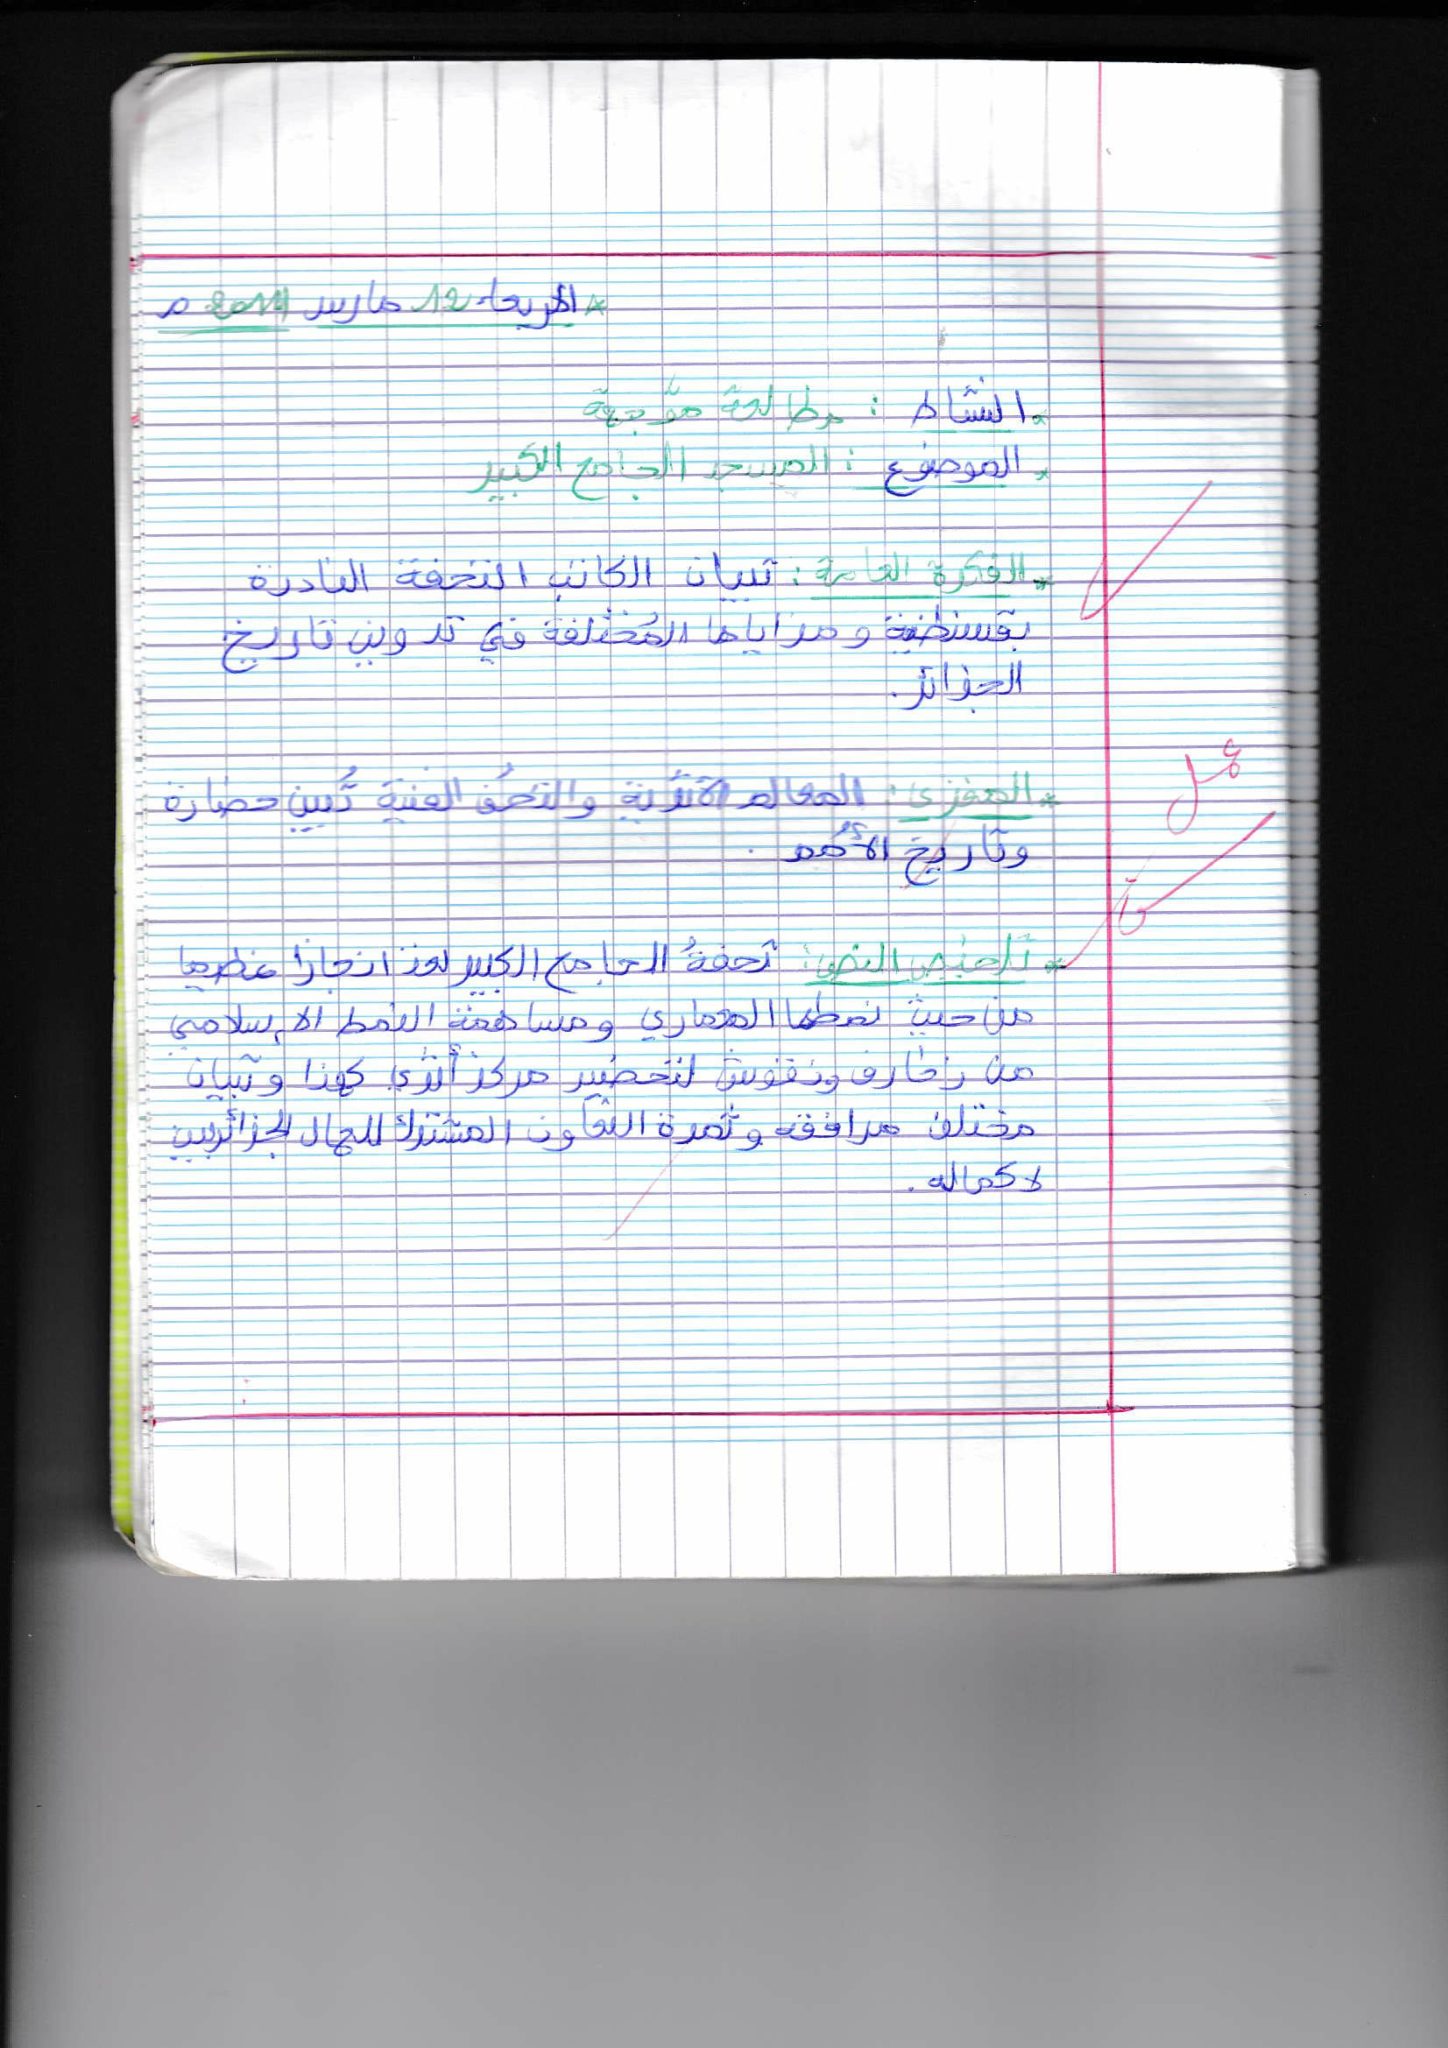 * الاربعاء 12 مارس 2014 م
* النشاط : مطالعة موّجهة
* الموضوع : المسجد الجامع الكبير
* الفكرة العامة : تبيان الكاتب التحفة النادرة
بقسنطينة و مزاياها المُختلفة في تدوين تاريخ
الجزائر .
* المغزى : المعالم الآثرية والتحفُ الفنية تُبين حضارة
وتاريخ الأُمم .
* تلخيص النص : تحفةُ الجامع الكبير لعذ انجازا عظيما
من حيث نمطها المعماري ومساهمة النمط الاسلامي
من زخارف ونقوش لتحضير مركز أثري كهذا و تبيان
مختلف مرافقه و ثمرة التعاون المشترك للعمال الجزائريين
لاكماله .